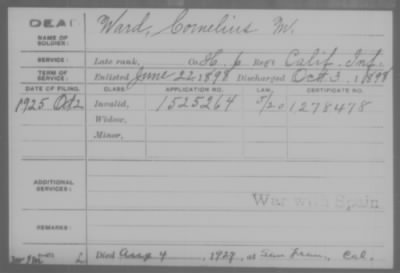 DEAD
NAME OF SOLDIER: Ward, Cornelius M.
SERVICE: Late rank, Co. H. 6 Reg't Calif. Inf.
TERM OF SERVICE: Enlisted June 22, 1898 Discharged Oct 3, 1898
DATE OF FILING. CLASS. APPLICATION NO. LAW. CERTIFICATE NO.
1925 Oct 2 Invalid, 1525264 1278478
Widow,
Minor,
ADDITIONAL SERVICES:
War with Spain
REMARKS:
Died Aug 4, 1927, at San Fran, Cal.